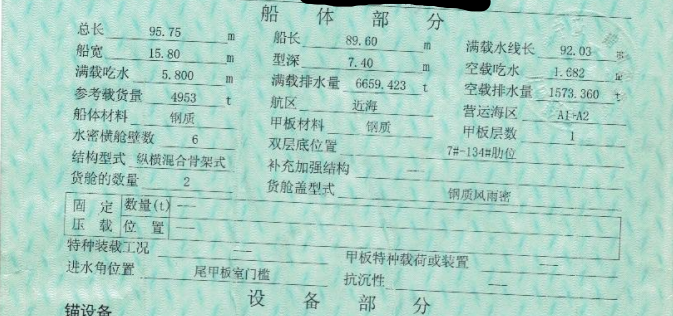 船 体 部 分
总长 95.75 m 船长 89.60 m 满载水线长 92.03 m
船宽 15.80 m 型深 7.40 m 空载吃水 1.682 m
满载吃水 5.800 m 满载排水量 6659.423 t 空载排水量 1573.360 t
参考载货量 4953 t 航区 近海 营运海区 A1-A2
船体材料 钢质 甲板材料 钢质 甲板层数 1
水密横舱壁数 6 双层底位置 7#-134#肋位
结构型式 纵横混合骨架式 补充加强结构 ——
货舱的数量 2 货舱盖型式 钢质风雨密
固 定 数量(t) ——
压 载 位 置 ——
特种装载工况 —— 甲板特种载荷或装置 ——
进水角位置 尾甲板室门槛 抗沉性 ——
设 备 部 分
锚设备